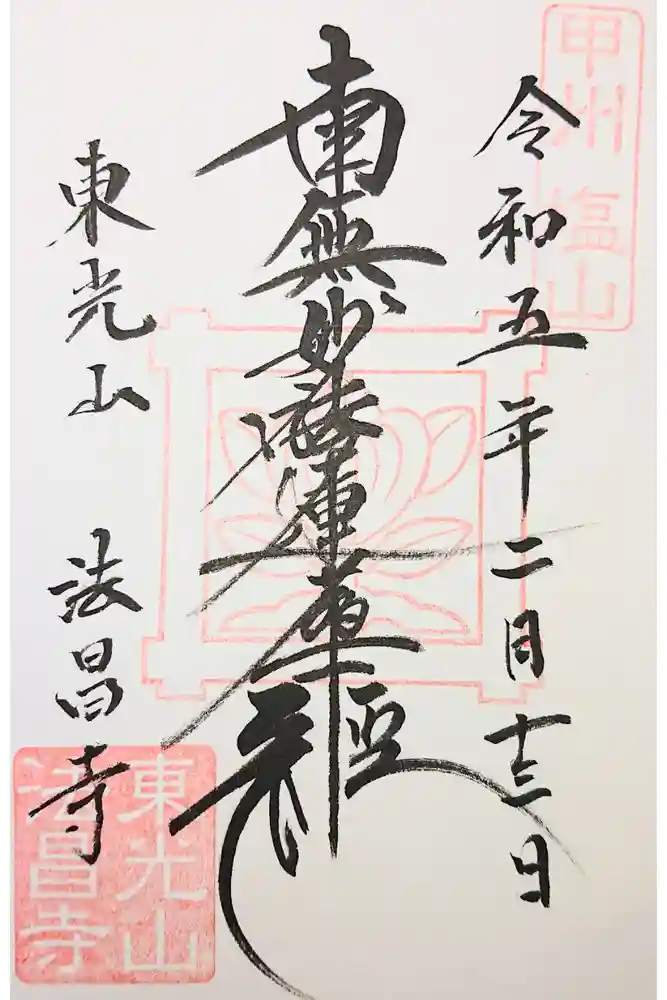 甲州塩山
令和五年二月十三日
南無妙法蓮華経
東光山　法昌寺
東光山
法昌寺